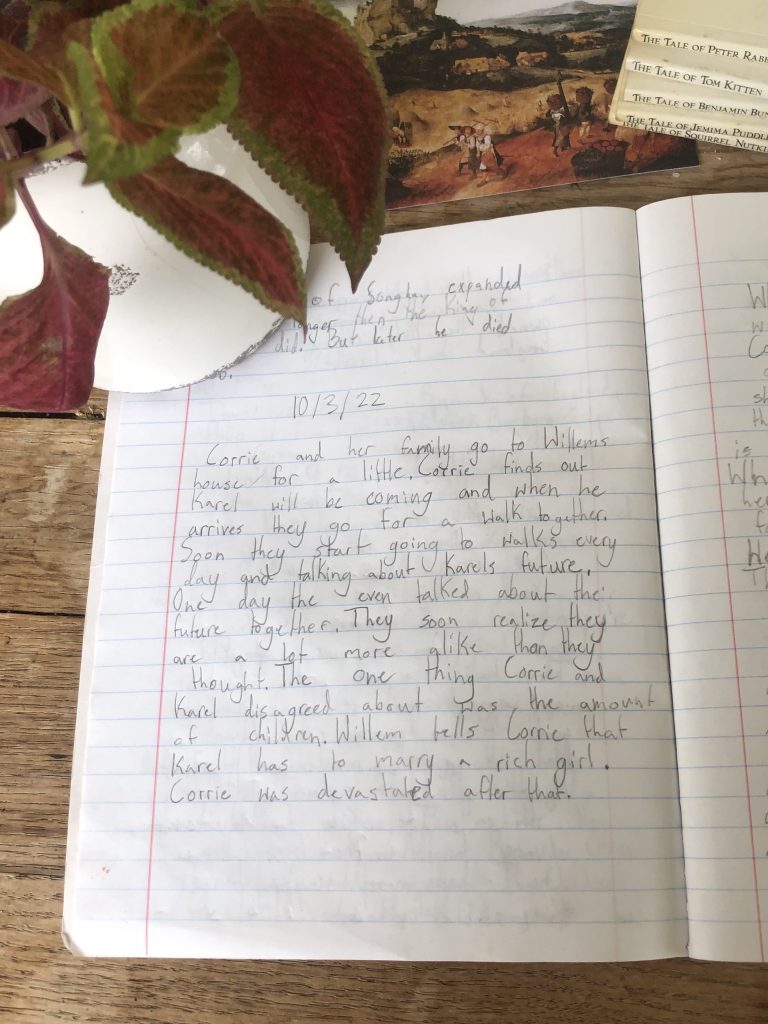 THE TALE OF PETER RABB
THE TALE OF TOM KITTEN
THE TALE OF BENJAMIN BUN
THE TALE OF JEMIMA PUDDL
THE TALE OF SQUIRREL NUTKI
of Songhay expanded
longer then the King of
did. But later he died
10/3/22
Corrie and her family go to Willems
house for a little. Corrie finds out
Karel will be coming and when he
arrives they go for a walk together.
Soon they start going to walks every
day and talking about Karels future.
One day the even talked about the
future together. They soon realize they
are a lot more alike than they
thought. The one thing Corrie and
Karel disagreed about was the amount
of children. Willem tells Corrie that
Karel has to marry a rich girl.
Corrie was devastated after that.